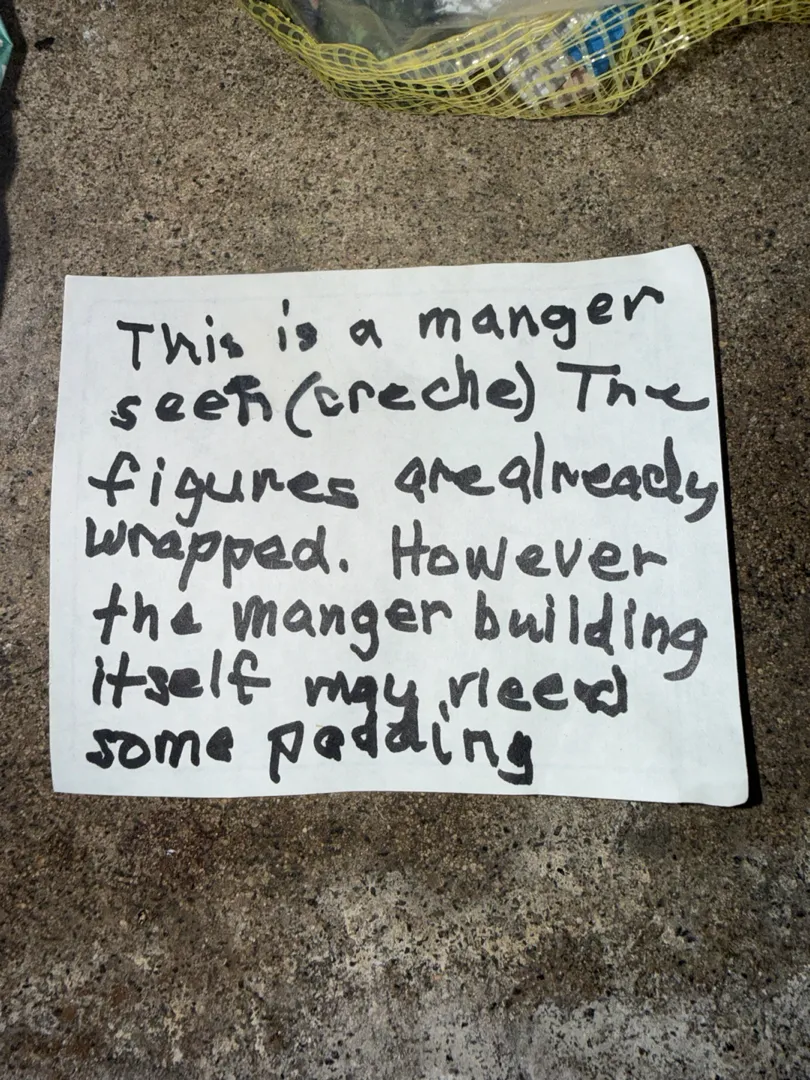 This is a manger
seen (creche) The
figures are already
wrapped. However
the manger building
itself may need
some padding